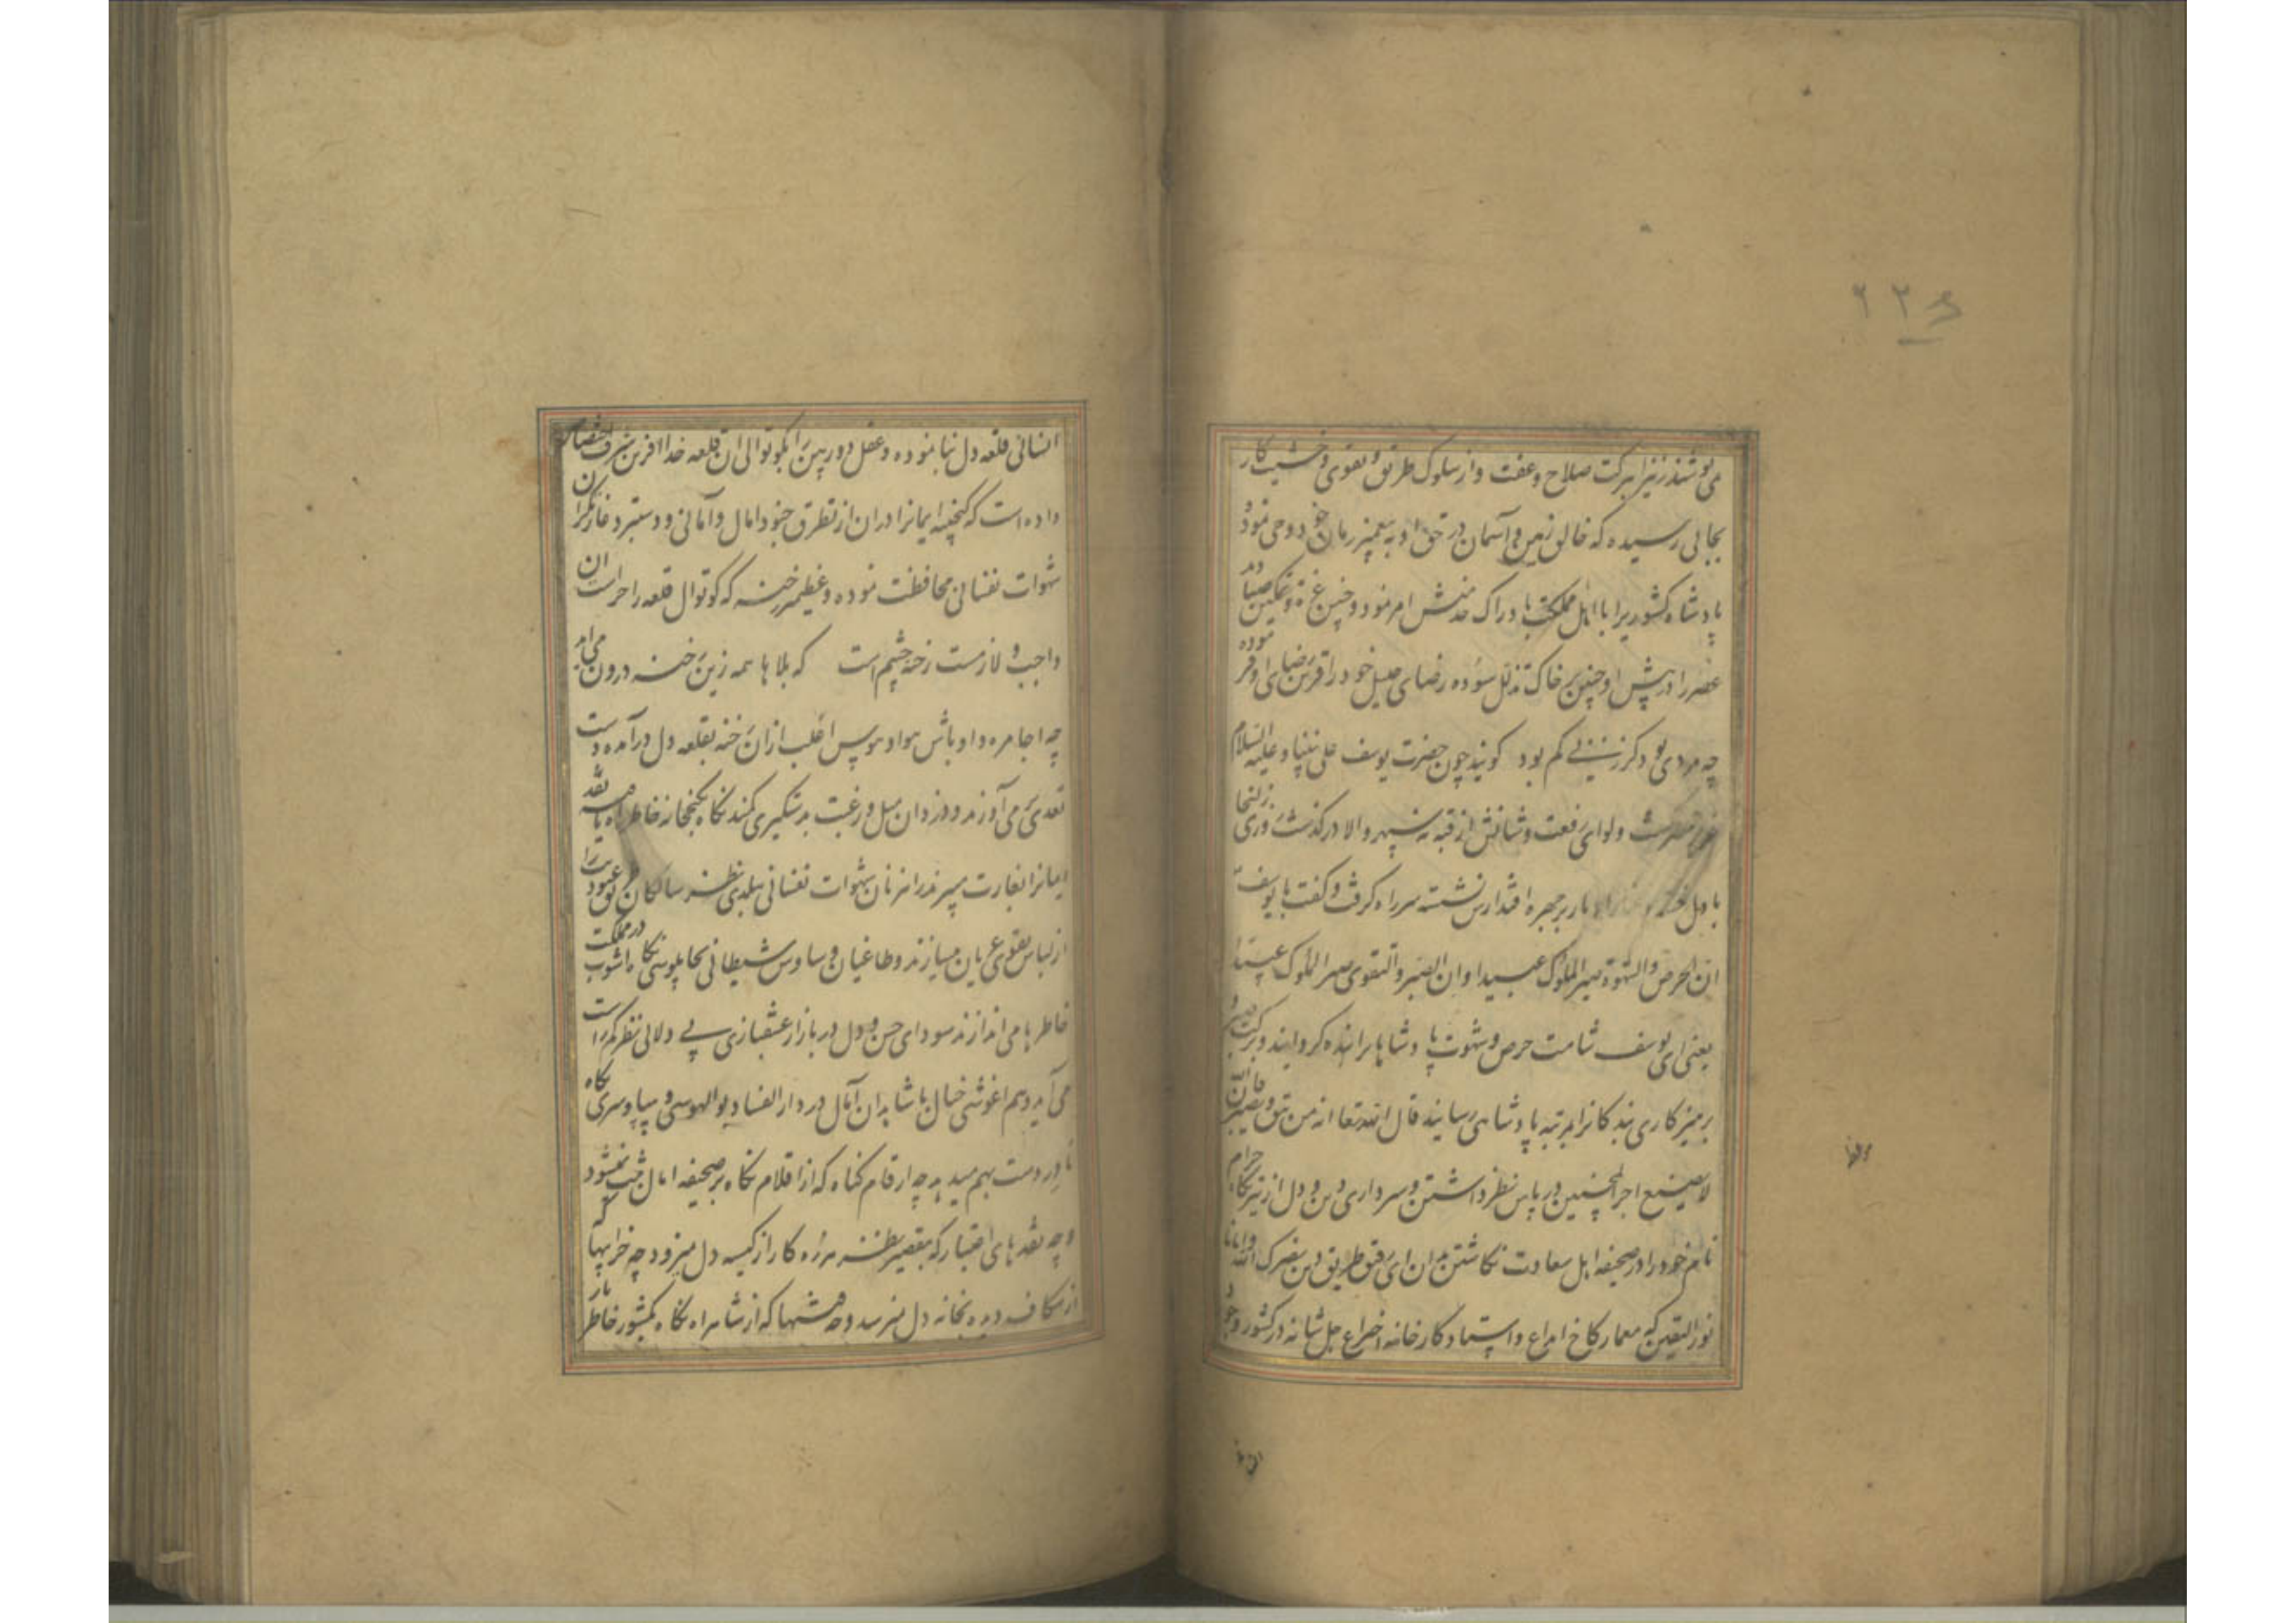 ۲۲۶
می‌پوشند زیرا ببرکت صلاح و عفت و از سلوک طریق و تقوی و خشیت کار
بجائی رسیده که خالق زمین و آسمان در حق او به پیغمبر زمان خود وحی نمود و
پادشاه کشوریرا با اهل مملکت بادراک خدمتش امر نمود و چنین عزة و تمکین
را در پیش او جبین بر خاک تذلل سوده رضای جلیل خود را قرین رضای او نموده
چه مردی بود کز زنی کم بود گویند چون حضرت یوسف علی نبینا و علیه السلام
عزیز مصر گشت و لوای رفعت و شانش از قبه نه سپهر والا در گذشت روزی زلیخا
با دل بر چهره اقتدارش نشسته سر راه گرفت و گفت یا یوسف
ان الحرص و الشهوة تصیر الملوک عبیدا و ان الصبر و التقوی یصیر الملوک عبیدا
یعنی ای یوسف شامت حرص و شهوت پادشاهانرا بنده گردانید و برکت صبر و
پرهیزکاری بندگانرا بمرتبه پادشاهی رسانید قال الله تعا انه من یتق و یصبر فان الله
لا یضیع اجر المحسنین در پاس نظر داشتن و سرداری دین و دل از تیر نگاه حرام
نام خود را در صحیفه اهل سعادت نگاشتن بدان ای رفیق طریق دین بصرک الله وایانا
نور الیقین که معمار کاخ ابداع و استاد کارخانه اختراع جل شانه در کشور وجود
انسانی قلعه دل بنا نموده و عقل دوربین را بکوتوالی ان قلعه خداافرین شرف اختصاص
داده است که گنجینه ایمانرا در ان از تطرق جنود امال و امانی و دستبرد غارتگران
شهوات نفسانی محافظت نموده و عظیم رخنه که کوتوال قلعه را حراست ان
واجب و لازمست رخنه چشم است که بلاها همه زین رخنه درون می‌اید
چه اجامره و اوباش هوا و هوس اغلب ازان رخنه بقلعه دل درآمده دست
تعدی می‌آورند و دزدان میل و رغبت بدستگیری کمند نگاه بگنجخانه خاطر راه یافته نقد
ایمانرا بغارت میبرند راهزنان شهوات نفسانی ببلدی نظر سالکان طریق عبودیت را
از لباس تقوی عریان میسازند و طاغیان وساوس شیطانی بجاسوسی نگاه در مملکت
خاطرها می‌اندازند سودای حسن و دل در بازار عشقبازی بی دلالی نظر کم راست
می‌آید و هم اغوشی خیال با شاهدان آمال در دار الفساد بوالهوسی بی پیاوسری نگاه
نادر دست بهم میدهد چه ارقام گناه که از اقلام نگاه بر صحیفه اعمال ثبت نمیشود
و چه نقدهای اختیار که بتقصیر نظر هرزه کار از کیسه دل میرود چه خرابیها که
از شکاف دیده بخانه دل میرسد و چه وحشتها که از شاهراه نگاه بکشور خاطر بار